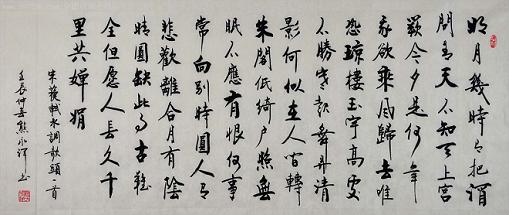 明月幾時有把酒
問青天不知天上宮
闕今夕是何年
我欲乘風歸去唯
恐瓊樓玉宇高處
不勝寒起舞弄清
影何似在人間轉
朱閣低綺户照無
眠不應有恨何事
常向別時圓人有
悲歡離合月有陰
晴圓缺此事古難
全但愿人長久千
里共嬋娟
宋蘇軾水調歌頭一首
壬辰仲